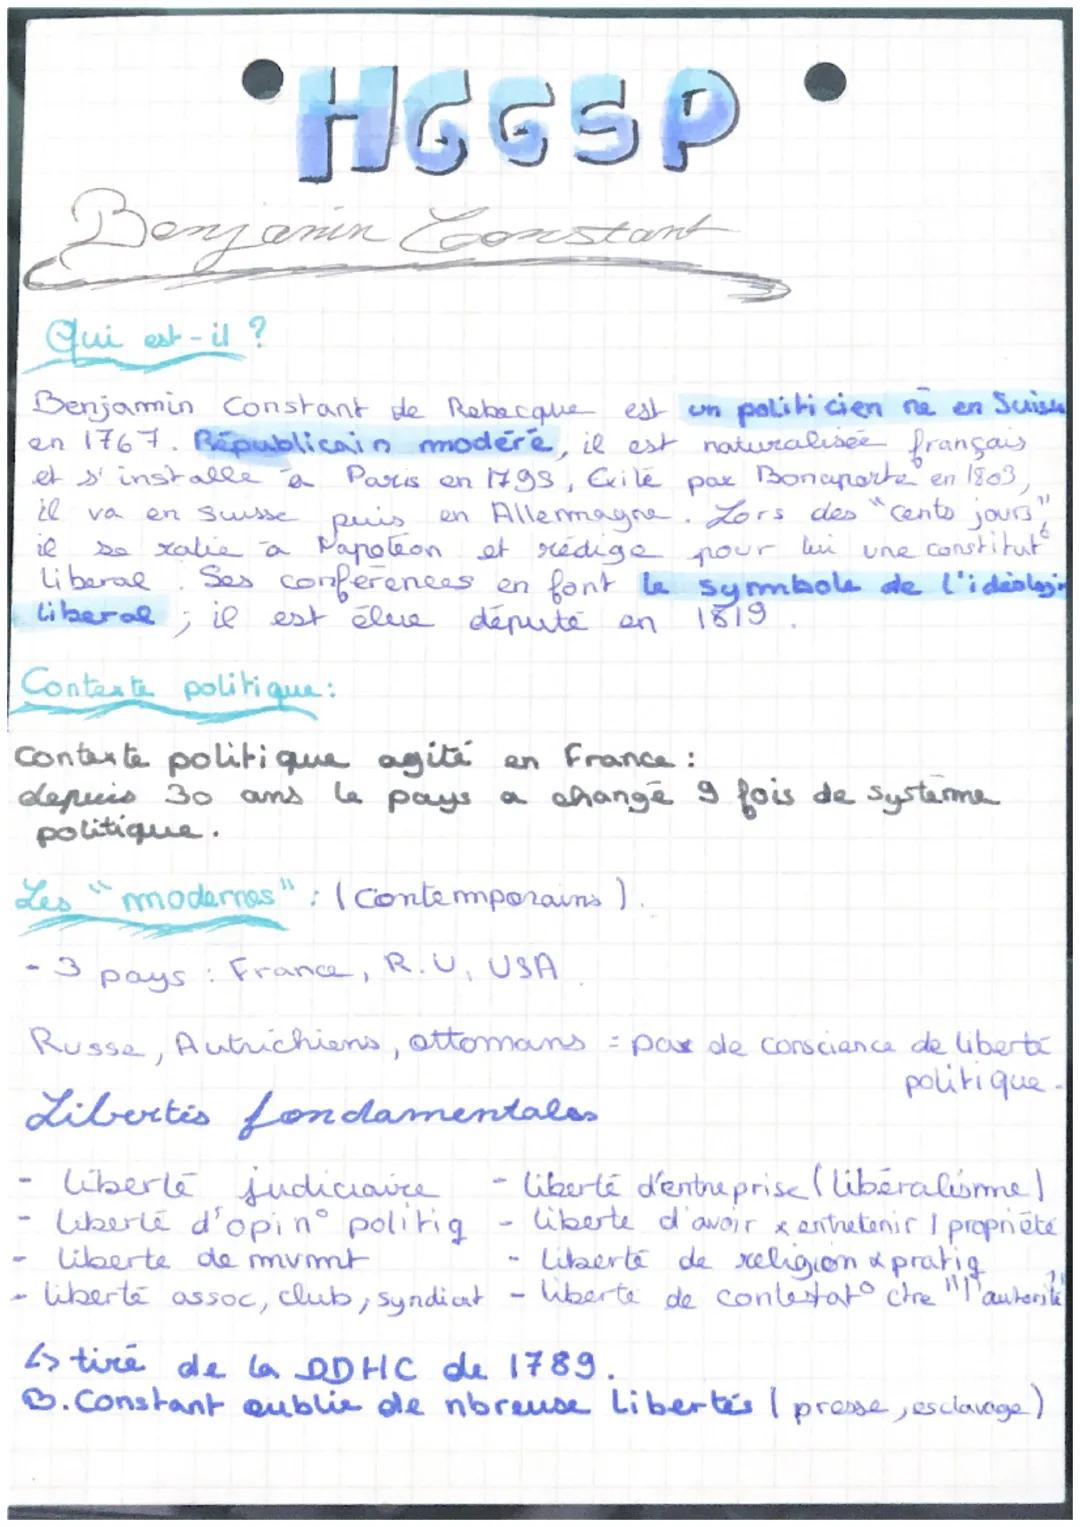 HGGSP
Benjamin Constant
Qui est-il ?
Benjamin Constant de Rebecque est un politicien né en Suisse
en 1767. Républicain modéré, il est naturalisée français
et s'installe à Paris en 1795, Exilé par Bonaparte en 1803,
il va en suisse puis en Allermagne. Lors des "cents jours",
il se ralie à Napoléon et rédige pour lui une constitut°
liberal. Ses conférences en font le symbole de l'idéologie
liberal ; il est élue député en 1819.
Contexte politique :
Contexte politique agité en France :
depuis 30 ans le pays a changé 9 fois de système
politique.
Les "modernes" : (contemporains).
- 3 pays : France, R.U, USA
Russe, Autrichiens, ottomans = pas de consciance de liberté
politique.
Libertés fondamentales
- liberté judiciaire - liberté d'entreprise (libéralisme)
- liberté d'opin° politiq - liberte d'avoir & entretenir 1 propriété
- liberte de mvmnt - Liberté de religion & pratiq
- liberté assoc, club, syndicat - liberte de contestat° ctre "l'autorité"
↳ tiré de la DDHC de 1789.
B. Constant oublie de nbreuse libertés (presse, esclavage)